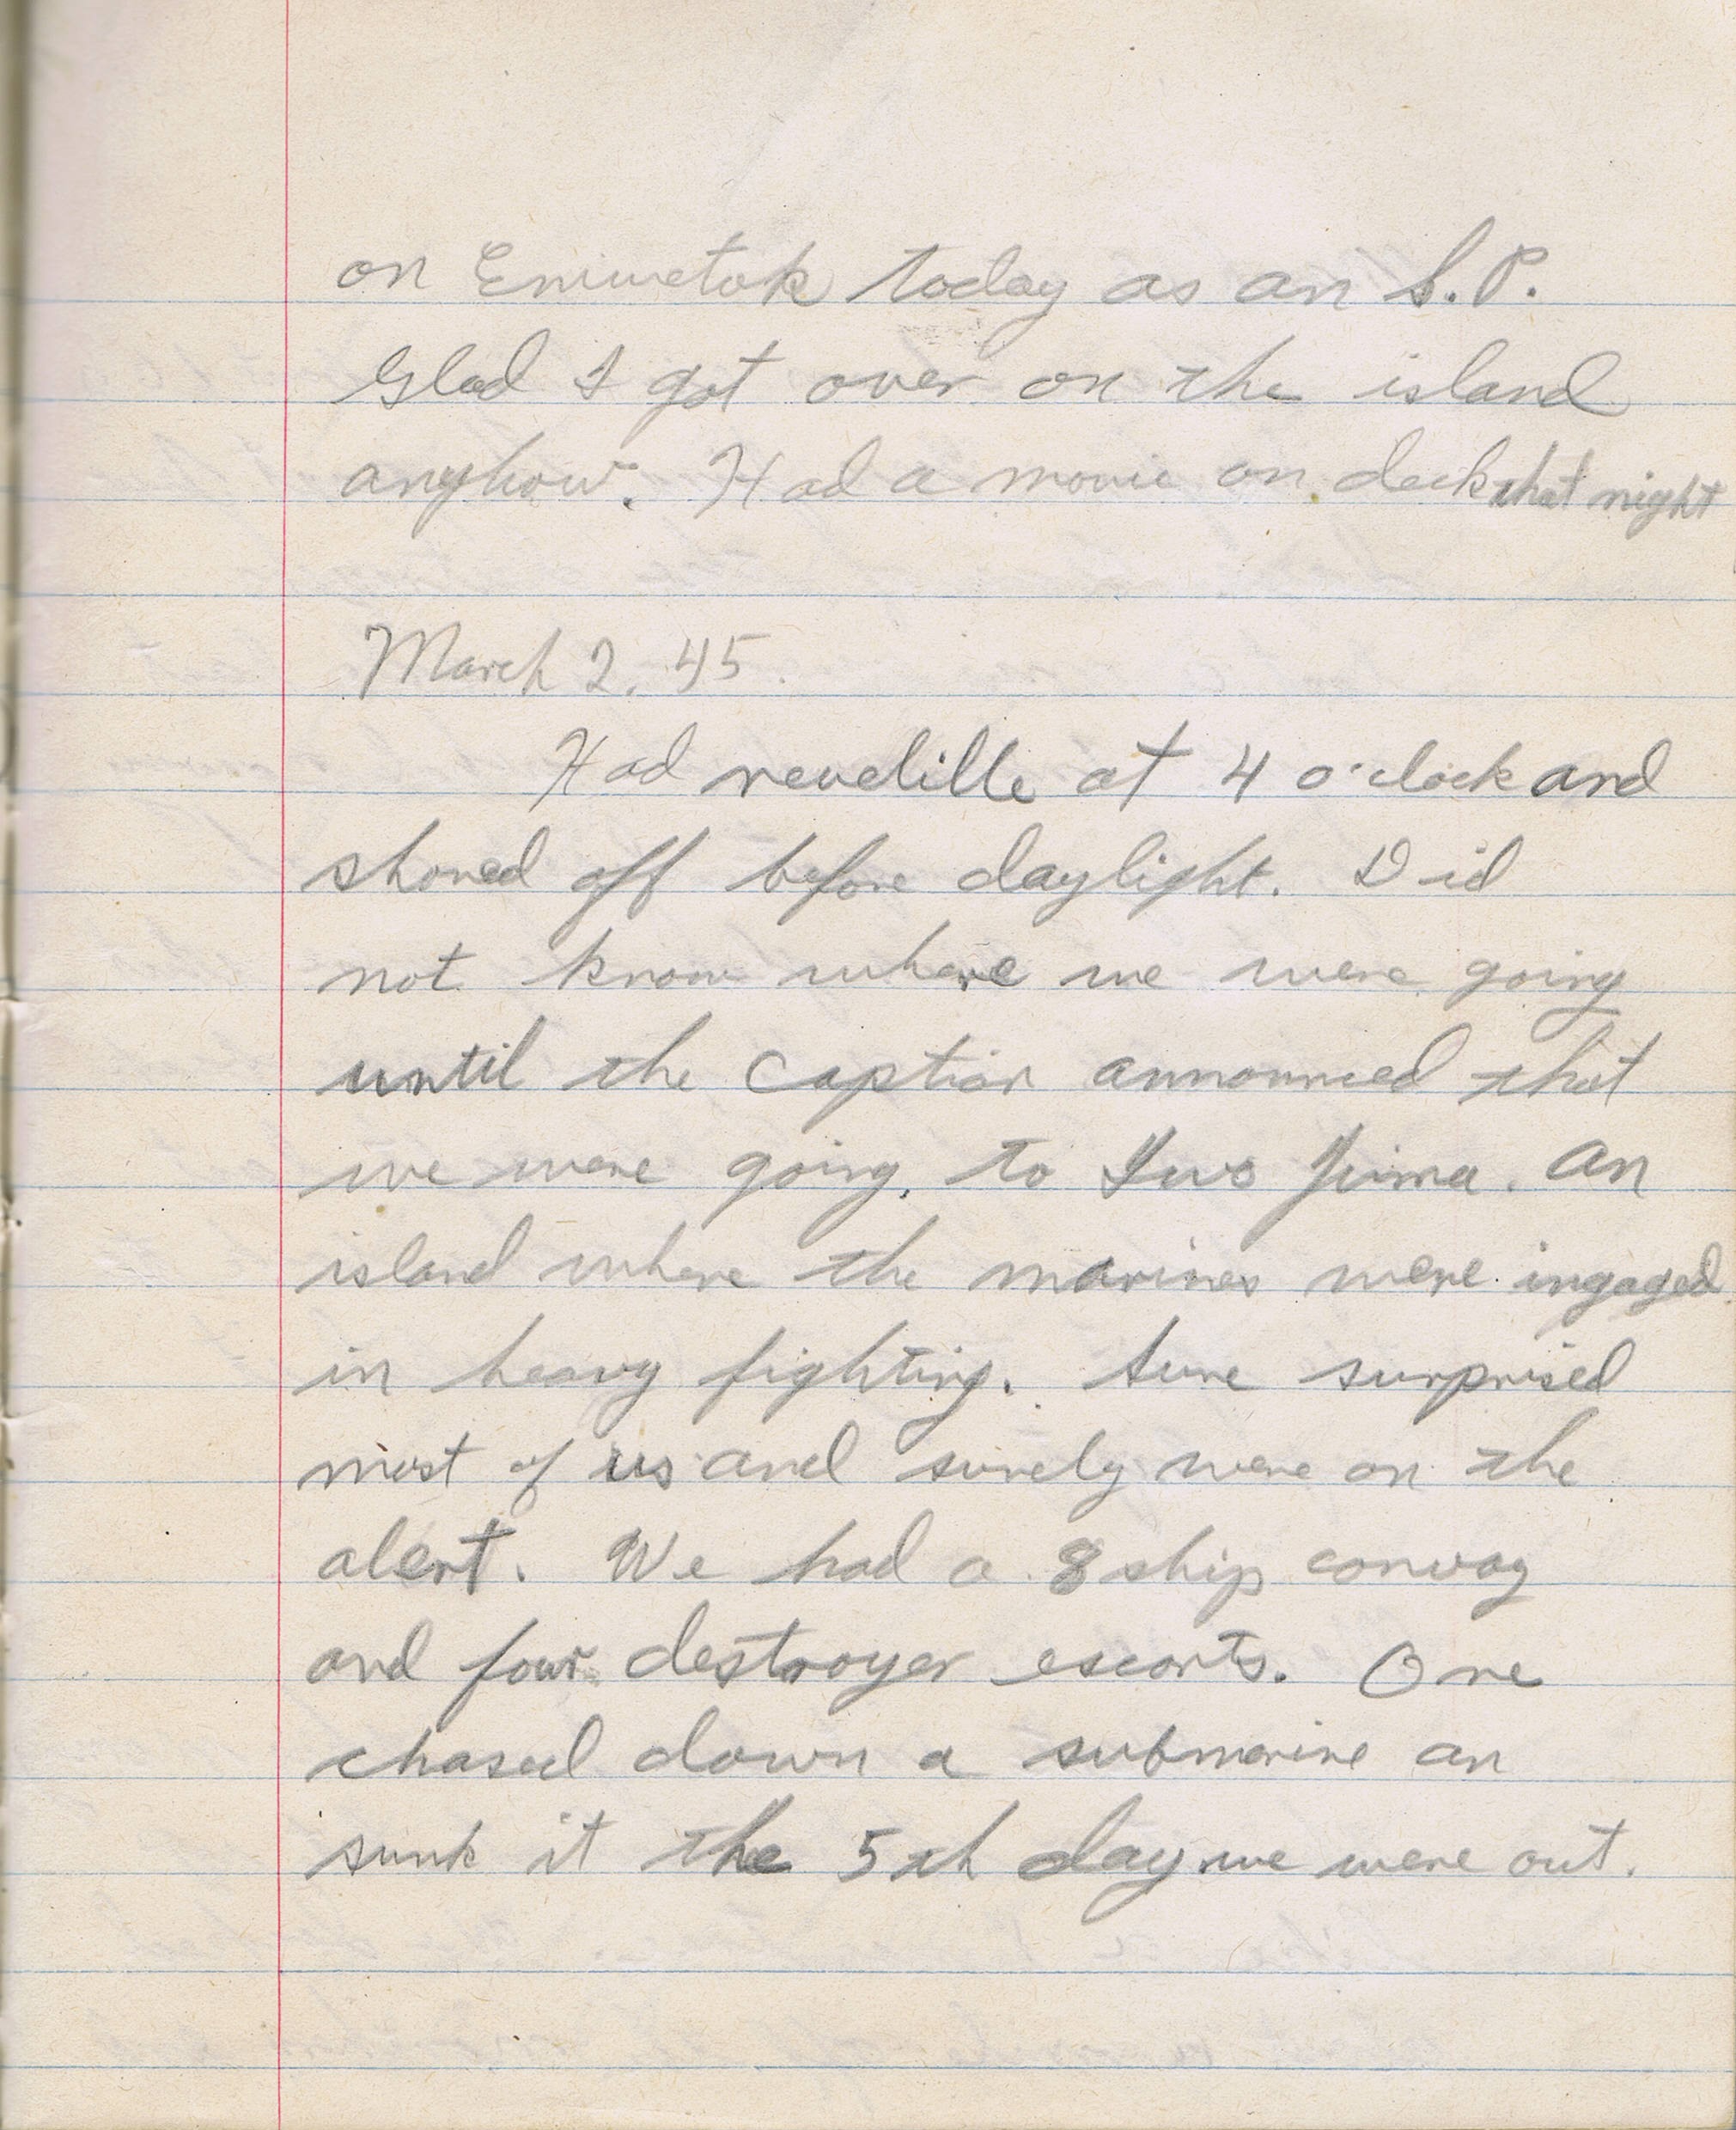 on Eniwetok today as an S.P.
Glad I got over on the island
anyhow. Had a movie on deck that night
March 2, 45.
Had revelille at 4 o'clock and
shoved off before daylight. Did
not know where we were going
until the Captian announced that
we were going to Iwo Jima. An
island where the marines were ingaged
in heavy fighting. Sure surprised
most of us and surely were on the
alert. We had a 8 ship convoy
and four destroyer escorts. One
chased down a submarine an
sunk it the 5th day we were out.